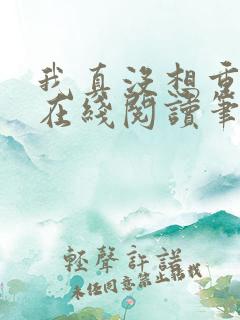 我真没想重
在綫閱讀筆
輕聲許諾
未经同意禁止转载